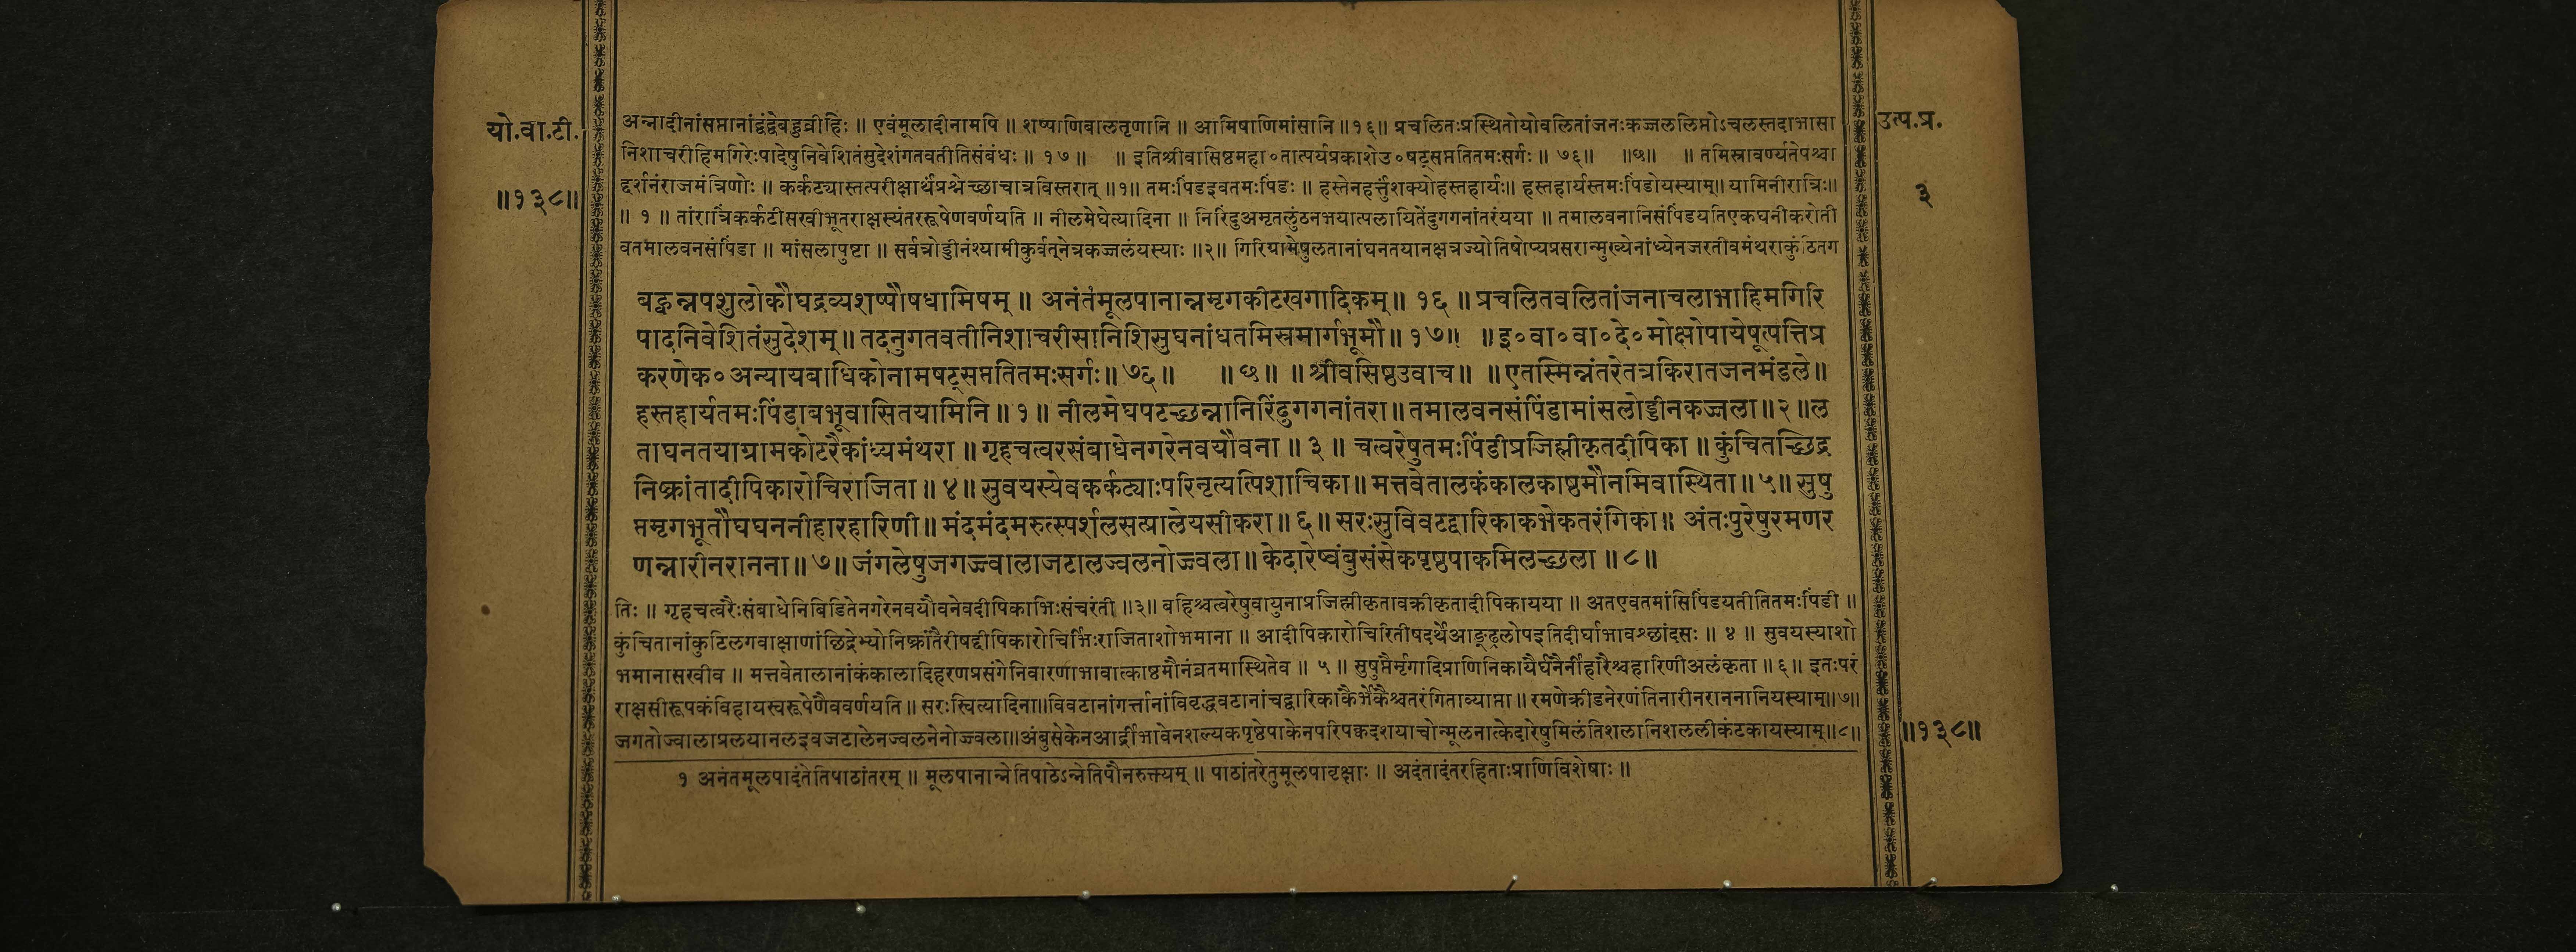 यो.वा.टी.
॥१३८॥
उत्प.प्र.
३
अन्नादीनांसप्तानांद्वंद्वेबहुव्रीहिः ॥ एवंमूलादीनामपि ॥ शष्पाणिबालतृणानि ॥ आमिषाणिमांसानि ॥१६॥ प्रचलितःप्रस्थितोयोवलितांजनःकज्जललिप्तोऽचलस्तदाभासा
निशाचरीहिमगिरेःपादेषुनिवेशितंसुदेशंगतवतीतिसंबंधः ॥ १७ ॥ ॥ इतिश्रीवासिष्ठमहा०तात्पर्यप्रकाशेउ०षट्सप्ततितमःसर्गः ॥ ७६॥ ॥छ॥ ॥ तमिस्रावर्ण्यतेपश्चा
द्दर्शनंराजमंत्रिणोः ॥ कर्कट्यास्तत्परीक्षार्थंप्रश्नेच्छाचात्रविस्तरात् ॥१॥ तमःपिंडइवतमःपिंडः ॥ हस्तेनहर्त्तुंशक्योहस्तहार्यः॥ हस्तहार्यस्तमःपिंडोयस्याम्॥ यामिनीरात्रिः॥
॥ १ ॥ तांरात्रिंकर्कटीसखीभूतराक्षस्यंतररूपेणवर्णयति ॥ नीलमेघेत्यादिना ॥ निरिंदुअमृतलुंठनभयात्पलायितेंदुगगनांतरंयया ॥ तमालवनानिसंपिंडयतिएकघनीकरोती
वतमालवनसंपिंडा ॥ मांसलापुष्टा ॥ सर्वत्रोड्डीनंश्यामीकुर्वत्नेत्रकज्जलंयस्याः ॥२॥ गिरिग्रामेषुलतानांघनतयानक्षत्रज्योतिषोप्यप्रसरान्मुख्येनांध्येनजरतीवमंथराकुंठितग
बह्वन्नपशुलोकौघद्रव्यशष्पौषधामिषम् ॥ अनंतंमूलपानान्नमृगकीटखगादिकम्॥ १६ ॥ प्रचलितवलितांजनाचलाभाहिमगिरि
पादनिवेशितंसुदेशम् ॥ तदनुगतवतीनिशाचरीसानिशिसुघनांधतमिस्रमार्गभूमौ॥ १७॥ ॥इ०वा०वा०दे०मोक्षोपायेषूत्पत्तिप्र
करणेक०अन्यायबाधिकोनामषट्सप्ततितमःसर्गः॥ ७६॥ ॥ छ॥ ॥ श्रीवसिष्ठउवाच॥ ॥ एतस्मिन्नंतरेतत्रकिरातजनमंडले॥
हस्तहार्यतमःपिंडाबभूवासितयामिनि ॥ १॥ नीलमेघपटच्छन्नानिरिंदुगगनांतरा॥ तमालवनसंपिंडामांसलोड्डीनकज्जला॥ २॥ल
ताघनतयाग्रामकोटरैकांध्यमंथरा ॥ गृहचत्वरसंबाधेनगरेनवयौवना ॥ ३ ॥ चत्वरेषुतमःपिंडीप्रजिह्मीकृतदीपिका ॥ कुंचितच्छिद्र
निष्क्रांतादीपिकारोचिराजिता ॥ ४॥ सुवयस्येवकर्कट्याःपरिनृत्यत्पिशाचिका॥ मत्तवेतालकंकालकाष्ठमौनमिवास्थिता॥ ५॥ सुषु
प्तमृगभूतौघघननीहारहारिणी॥ मंदमंदमरुत्स्पर्शलसत्प्रालेयसीकरा॥ ६॥ सरःसुविवटद्वारिकाकभेकतरंगिका॥ अंतःपुरेषुरमणर
णन्नारीनरानना॥ ७॥ जंगलेषुजगज्ज्वालाजटालज्वलनोज्ज्वला॥ केदारेष्वंबुसंसेकपृष्ठपाकमिलच्छला ॥ ८॥
तिः ॥ गृहचत्वरैःसंबाधेनिबिडितेनगरेनवयौवनेवदीपिकाभिःसंचरंती ॥३॥ बहिश्चत्वरेषुवायुनाप्रजिह्मीकृतावक्रीकृतादीपिकायया ॥ अतएवतमांसिपिंडयतीतितमःपिंडी ॥
कुंचितानांकुटिलगवाक्षाणांछिद्रेभ्योनिष्क्रांतैरीषद्दीपिकारोचिर्भिःराजिताशोभमाना ॥ आदीपिकारोचिरितीषदर्थेआङ्ढ्रलोपइतिदीर्घाभावश्छांदसः ॥ ४ ॥ सुवयस्याशो
भमानासखीव ॥ मत्तवेतालानांकंकालादिहरणप्रसंगेनिवारणाभावात्काष्ठमौनंव्रतमास्थितेव ॥ ५ ॥ सुषुप्तैर्मृगादिप्राणिनिकायैर्घनैर्नीहारैश्चहारिणीअलंकृता ॥ ६॥ इतःपरं
राक्षसीरूपकंविहायस्वरूपेणैववर्णयति॥ सरःस्वित्यादिना॥विवटानांगर्त्तानांविवृद्धवटानांचद्वारिकाकैर्भेकैश्चतरंगिताव्याप्ता ॥ रमणेक्रीडनेरणंतिनारीनराननानियस्याम्॥७॥
जगतोज्वालाप्रलयानलइवजटालेनज्वलनेनोज्ज्वला॥अंबुसेकेनआर्द्रीभावेनशल्यकपृष्ठेपाकेनपरिपक्वदशयाचोन्मूलनात्केदारेषुमिलंतिशलानिशललीकंटकायस्याम्॥८॥
॥१३८॥
१ अनंतमूलपादंतेतिपाठांतरम् ॥ मूलपानान्नेतिपाठेऽन्नेतिपौनरुक्त्यम् ॥ पाठांतरेतुमूलपावृक्षाः ॥ अदंतादंतरहिताःप्राणिविशेषाः ॥